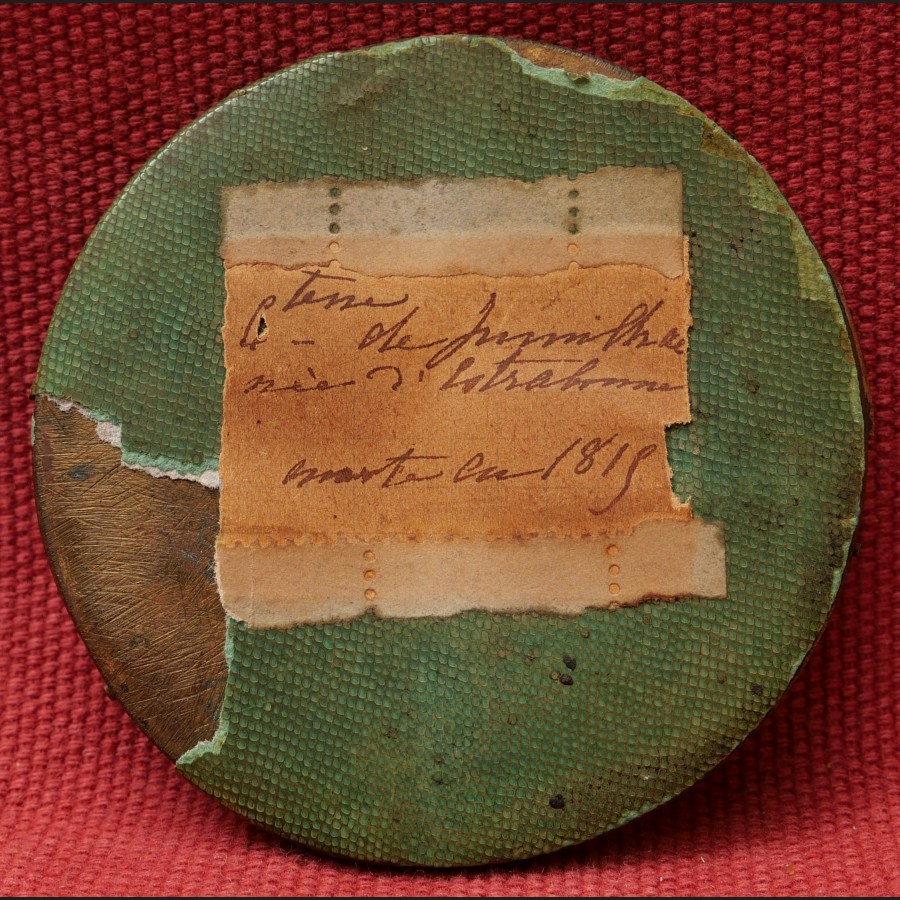 Ctesse
de Jumilhac
née d'Estrabonne
morte en 1819